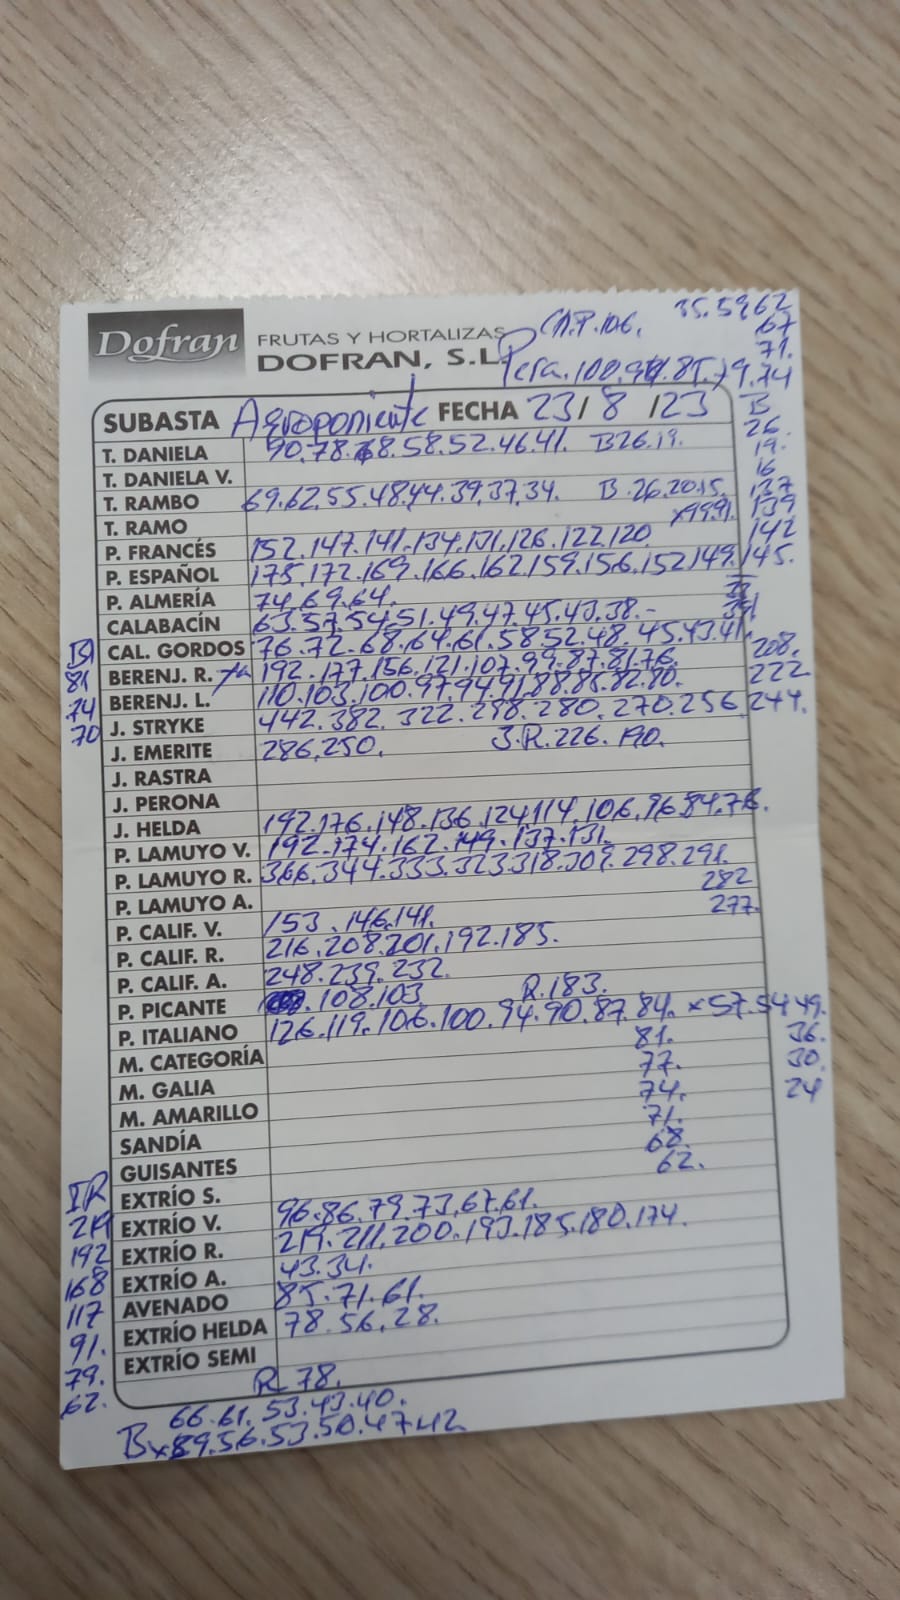 Dofran FRUTAS Y HORTALIZAS
DOFRAN, S.L.
CH.P.106. 35.5962
67
71.
Pera.100.94.85.79.74
SUBASTA Agroponiente FECHA 23/8/23
B
26.
19.
16
T. DANIELA 90.78.68.58.52.46.41. B26.19.
T. DANIELA V.
T. RAMBO 69.62.55.48.44.39.37.34. B.26.20.15.
137
139
142
T. RAMO x99.91.
P. FRANCÉS 152.147.141.134.131.126.122.120
P. ESPAÑOL 175.172.169.166.162.159.156.152.149.145.
P. ALMERÍA 74.69.64.
CALABACÍN 63.57.54.51.49.47.45.43.38.-
CAL. GORDOS 76.72.68.64.61.58.52.48.45.43.41.
BERENJ. R. 192.177.156.121.107.99.87.81.76.
BERENJ. L. 110.103.100.97.94.91.88.85.82.80.
81
74
70
208.
222
J. STRYKE 442.382.322.298.280.270.256.244.
J. EMERITE 286.250. J.R.226.190.
J. RASTRA
J. PERONA
J. HELDA 192.176.148.136.124.114.106.96.84.76.
P. LAMUYO V. 192.174.162.149.137.131.
P. LAMUYO R. 366.344.333.323.318.309.298.291.
282
277.
P. LAMUYO A.
P. CALIF. V. 153.146.141.
P. CALIF. R. 216.208.201.192.185.
P. CALIF. A. 248.239.232.
P. PICANTE .108.103. R.183.
P. ITALIANO 126.119.106.100.94.90.87.84. x57.54.49.
81. 36.
M. CATEGORÍA 77. 30.
M. GALIA 74. 24
M. AMARILLO 71.
SANDÍA 68.
GUISANTES 62.
EXTRÍO S. 96.86.79.73.67.61.
EXTRÍO V. 219.211.200.193.185.180.174.
EXTRÍO R. 43.34.
EXTRÍO A. 85.71.61.
AVENADO 78.56.28.
EXTRÍO HELDA
EXTRÍO SEMI
219
192
168
117
91.
79.
62.
R 78.
66.61.53.43.40.
Bx59.56.53.50.47.42